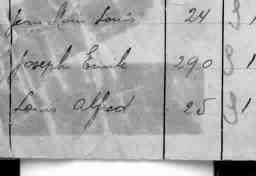 Jean Louis 24 1
Joseph Emile 290 1
Louis Alfred 25 1